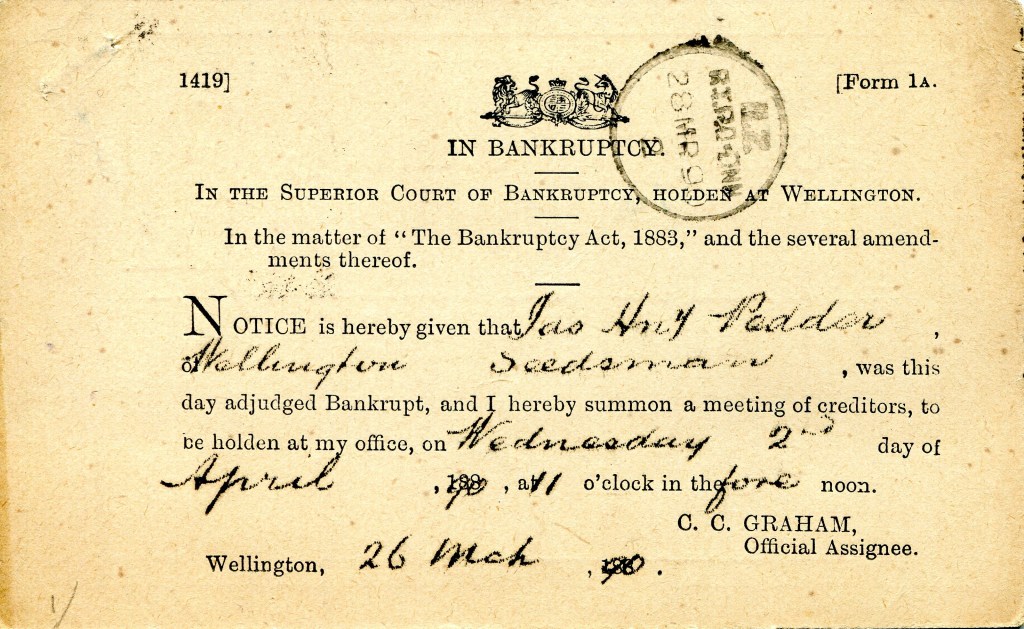 1419]
[Form 1A.
N.Z
28 MR 90
IN BANKRUPTCY.
IN THE SUPERIOR COURT OF BANKRUPTCY, HOLDEN AT WELLINGTON.
In the matter of “The Bankruptcy Act, 1883,” and the several amend-
ments thereof.
NOTICE is hereby given that Jas Hny Pedder ,
of Wellington Seedsman , was this
day adjudged Bankrupt, and I hereby summon a meeting of creditors, to
be holden at my office, on Wednesday 2nd day of
April , 90 , at 11 o'clock in the fore noon.
C. C. GRAHAM,
Official Assignee.
Wellington, 26 Mch , 90 .
1/